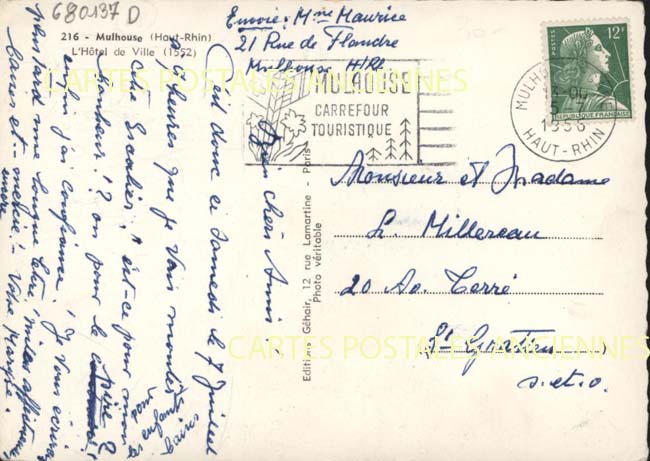 680137 D
216 - Mulhouse (Haut-Rhin)
L'Hôtel de Ville (1552)
Envoie: Mme Maurice
21 Rue de Flandre
Mulhouse H/Rh.
MULHOUSE
CARREFOUR
TOURISTIQUE
MULHOUSE
5-7
1956
HAUT-RHIN
POSTES
12F
REPUBLIQUE FRANÇAISE
Monsieur et Madame
L. Millereau
20 Av. Carré
St Gratien
S. et O.
Editions Géhair, 12 rue Lamartine - Paris
Photo véritable
Bien chers Amis!
C'est donc ce Samedi le 7 Juillet
à 9 heures que je vais monter
cette Escalier, est-ce pour mon
bonheur? ou pour le
pire?
enfin j'ai confiance! Je vous écrirai
plus tard une longue lettre, milles affections
encore
Votre
pour
les enfants
CARTES POSTALES ANCIENNES
CARTES POSTALES ANCIENNES